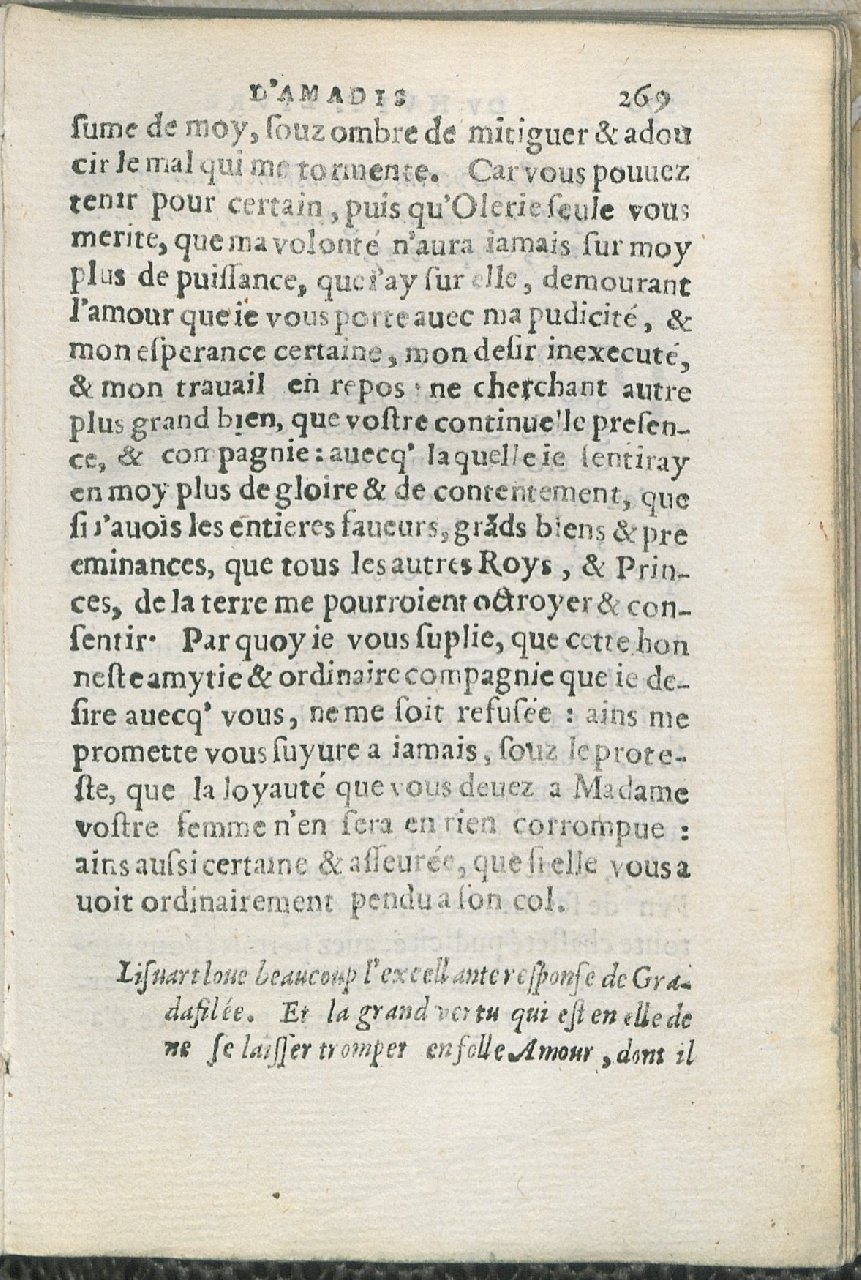 L'AMADIS 269
ſume de moy, ſouz ombre de mitiguer & adou
cir le mal qui me tormente. Car vous pouuez
tenir pour certain, puis qu'Olerie ſeule vous
merite, que ma volonté n'aura iamais ſur moy
plus de puiſſance, que i'ay ſur elle, demourant
l'amour que ie vous porte auec ma pudicité, &
mon eſperance certaine, mon deſir inexecuté,
& mon trauail en repos : ne cherchant autre
plus grand bien, que voſtre continuelle preſen-
ce, & compagnie: auecq' laquelle ie ſentiray
en moy plus de gloire & de contentement, que
ſi i'auois les entieres faueurs, grãds biens & pre
eminances, que tous les autres Roys, & Prin-
ces, de la terre me pourroient octroyer & con-
ſentir. Par quoy ie vous ſuplie, que cette hon
neſte amytie & ordinaire compagnie que ie de-
ſire auecq' vous, ne me ſoit refuſée : ains me
promette vous ſuyure a iamais, ſouz le prote-
ſte, que la loyauté que vous deuez a Madame
voſtre femme n'en ſera en rien corrompue :
ains auſsi certaine & aſſeurée, que ſi elle vous a
uoit ordinairement pendu a ſon col.
Liſuart loue beaucoup l'excellante reſponſe de Gra-
daſilée. Et la grand vertu qui eſt en elle de
ne ſe laiſſer tromper en folle Amour, dont il